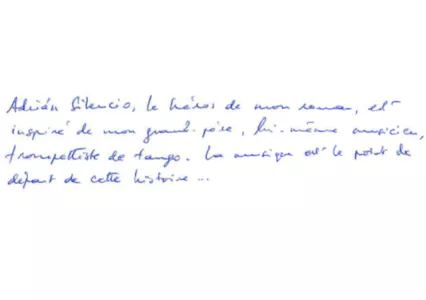 Adrián Silencio, le héros de mon roman, est
inspiré de mon grand-père, lui-même musicien,
trompettiste de tango. La musique est le point de
départ de cette histoire...